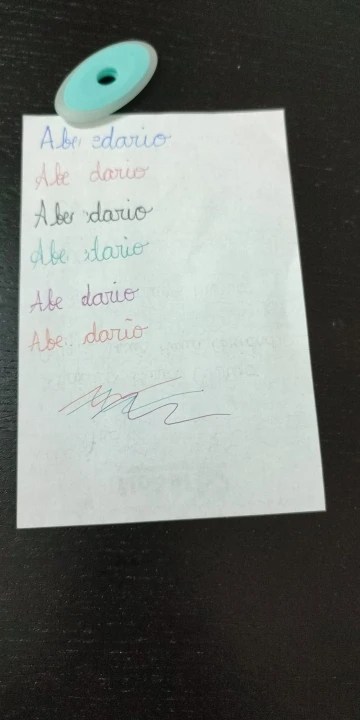 Abe cdario
Abe dario
Abe cdario
Abe cdario
Abe dario
Abe dario